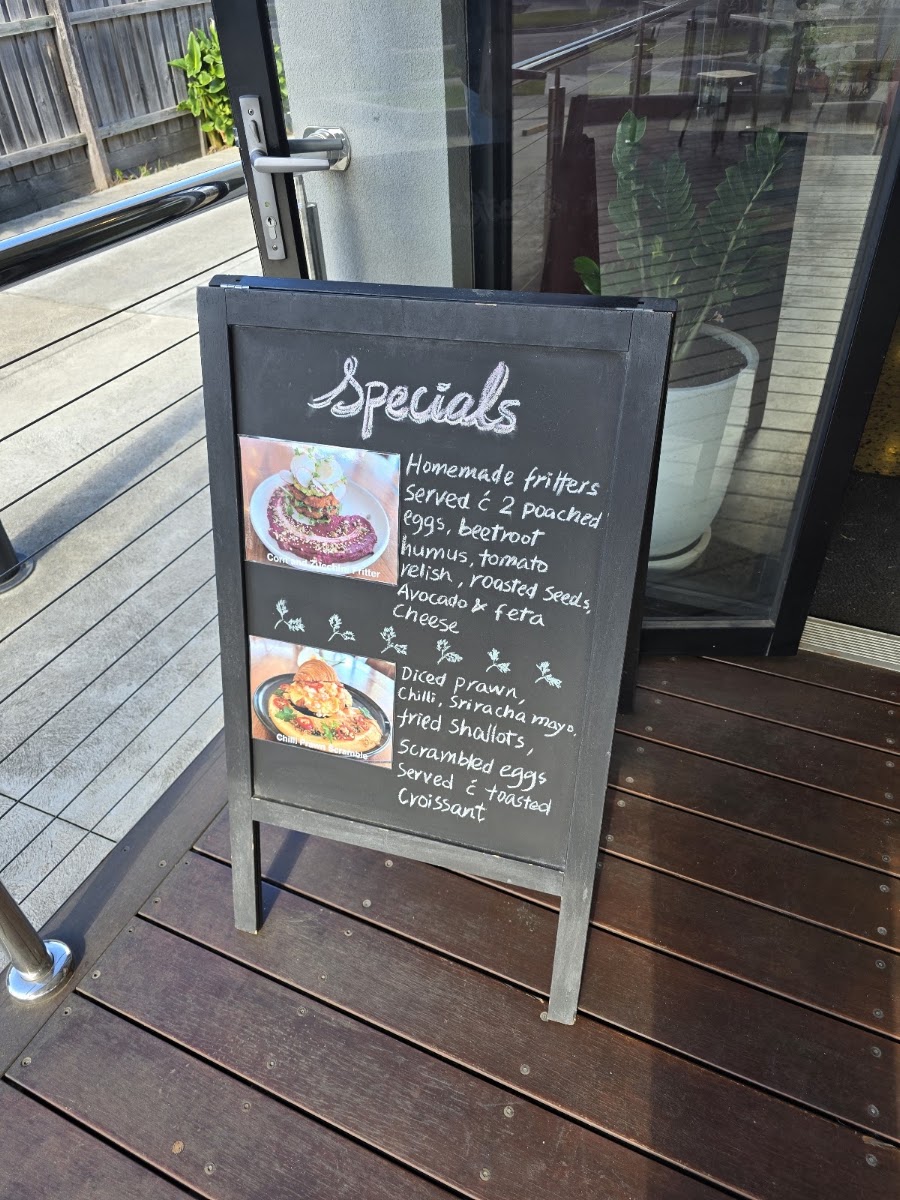 Specials
Homemade fritters
Served & 2 poached
eggs, beetroot
humus, tomato
relish, roasted seeds,
Avocado & feta
Cheese
Fritter
Diced prawn,
Chilli, Sriracha mayo.
fried shallots,
Scrambled eggs
Served & toasted
Croissant
Chilli Prawn Scramble